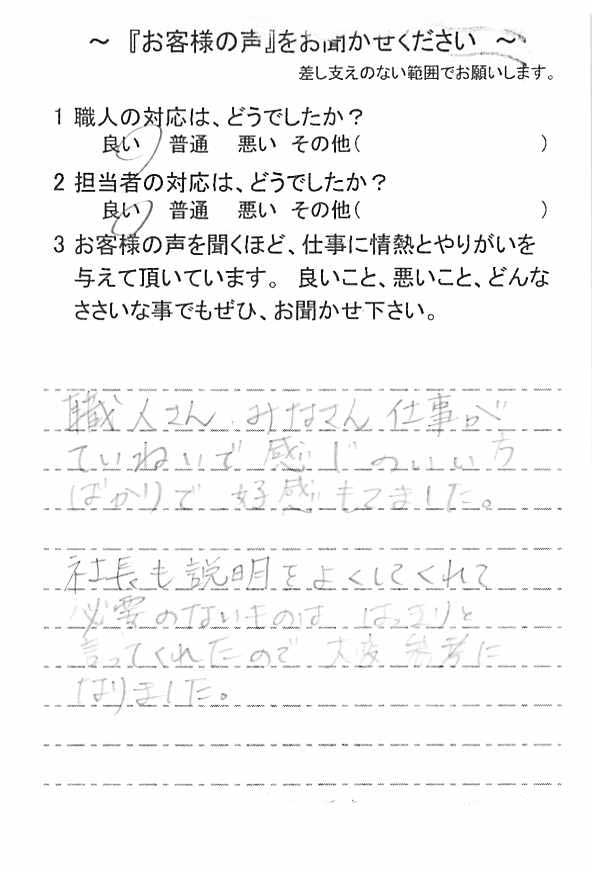 ～ 『お客様の声』をお聞かせください ～
差し支えのない範囲でお願いします。
1 職人の対応は、どうでしたか？
良い 普通 悪い その他( )
2 担当者の対応は、どうでしたか？
良い 普通 悪い その他( )
3 お客様の声を聞くほど、仕事に情熱とやりがいを
与えて頂いています。 良いこと、悪いこと、どんな
ささいな事でもぜひ、お聞かせ下さい。
職人さん、みなさん 仕事が
ていねいで 感じのいい方
ばかりで 好感もてました。
社長も説明をよくしてくれて
必要のないものは はっきりと
言ってくれたので 大変 参考に
なりました。